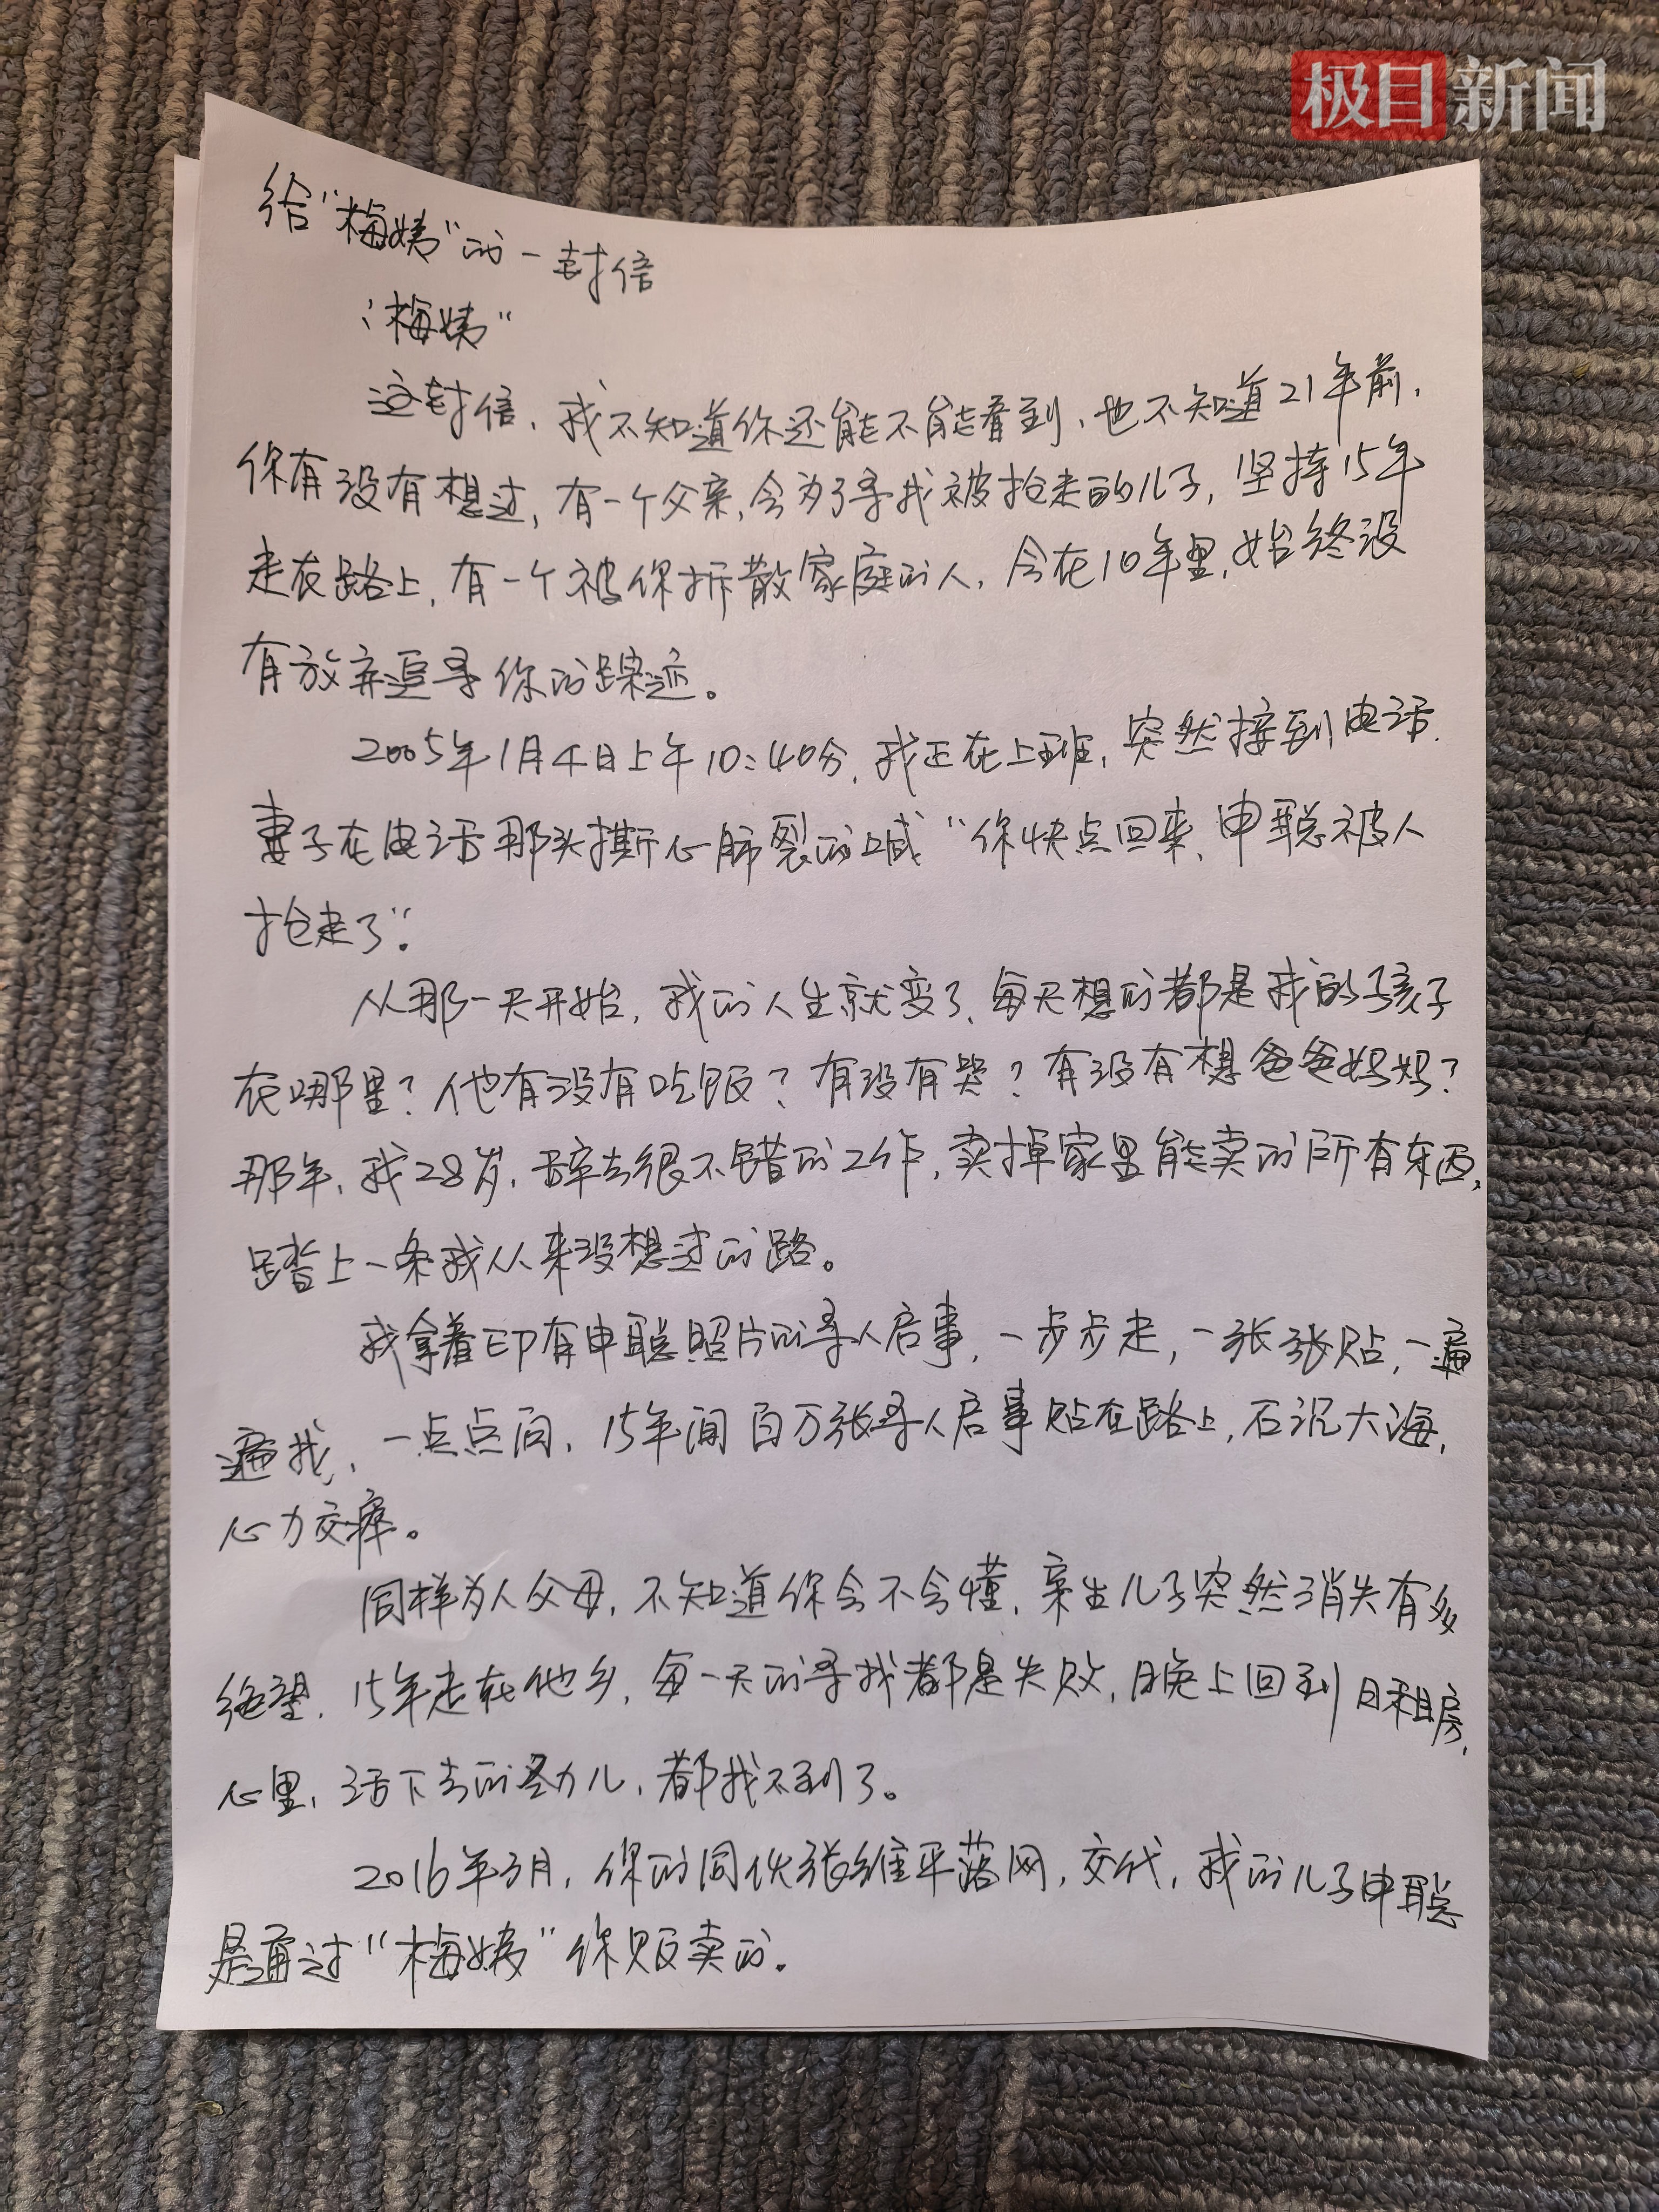 极目新闻
给“梅姨”的一封信
“梅姨”
这封信，我不知道你还能不能看到，也不知道21年前，
你有没有想过，有一个父亲，会为了寻找被抢走的儿子，坚持15年
走在路上，有一个被你拆散家庭的人，会在10年里，始终没
有放弃追寻你的踪迹。
2005年1月4日上午10:40分，我正在上班，突然接到电话，
妻子在电话那头撕心肺裂的喊“你快点回来，申聪被人
抢走了”。
从那一天开始，我的人生就变了，每天想的都是我的孩子
在哪里？他有没有吃饭？有没有哭？有没有想爸爸妈妈？
那年，我28岁，辞去很不错的工作，卖掉家里能卖的所有东西，
踏上一条我从来没想过的路。
我拿着印有申聪照片的寻人启事，一步步走，一张张贴，一遍
遍找，一点点问，15年间百万张寻人启事贴在路上，石沉大海，
心力交瘁。
同样为人父母，不知道你会不会懂，亲生儿子突然消失有多
绝望，15年走在他乡，每一天的寻找都是失败，晚上回到日租房，
心里，活下去的劲儿，都找不到了。
2016年3月，你的同伙张维平落网，交代，我的儿子申聪
是通过“梅姨”你贩卖的。